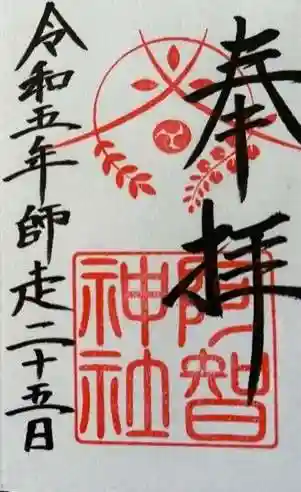 奉拝
阿智
神社
令和五年師走二十五日